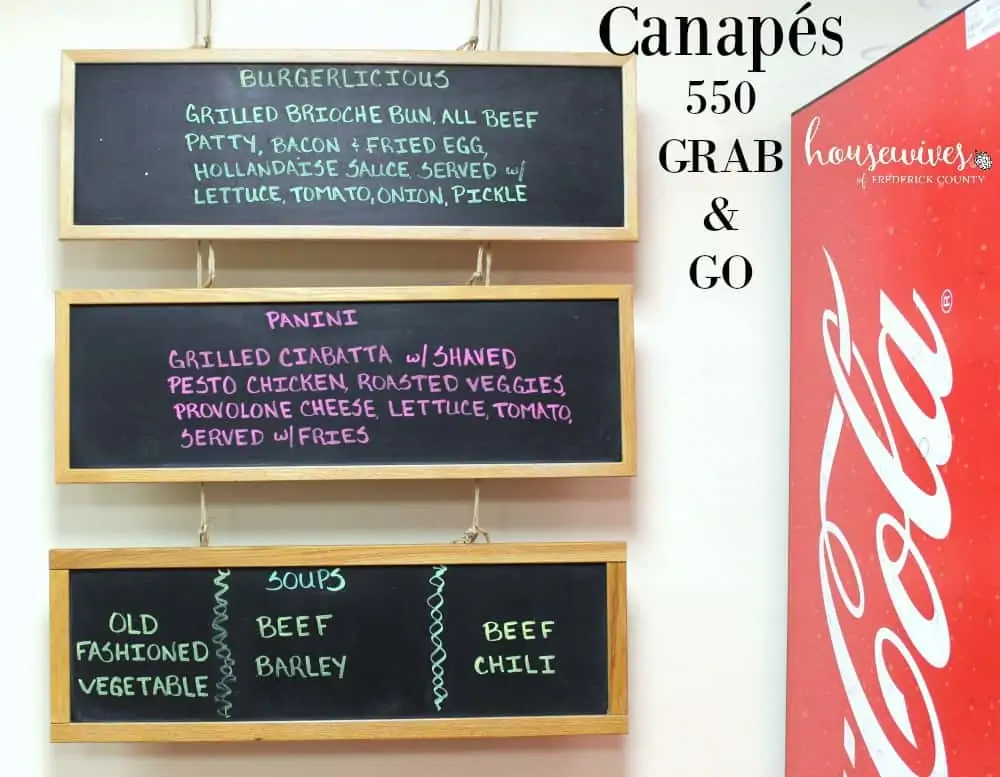 BURGERLICIOUS
GRILLED BRIOCHE BUN, ALL BEEF
PATTY, BACON + FRIED EGG,
HOLLANDAISE SAUCE, SERVED w/
LETTUCE, TOMATO, ONION, PICKLE
PANINI
GRILLED CIABATTA w/ SHAVED
PESTO CHICKEN, ROASTED VEGGIES,
PROVOLONE CHEESE, LETTUCE, TOMATO,
SERVED w/ FRIES
SOUPS
OLD
FASHIONED
VEGETABLE
BEEF
BARLEY
BEEF
CHILI
Canapés
550
GRAB
&
GO
housewives
of FREDERICK COUNTY
Cola ®